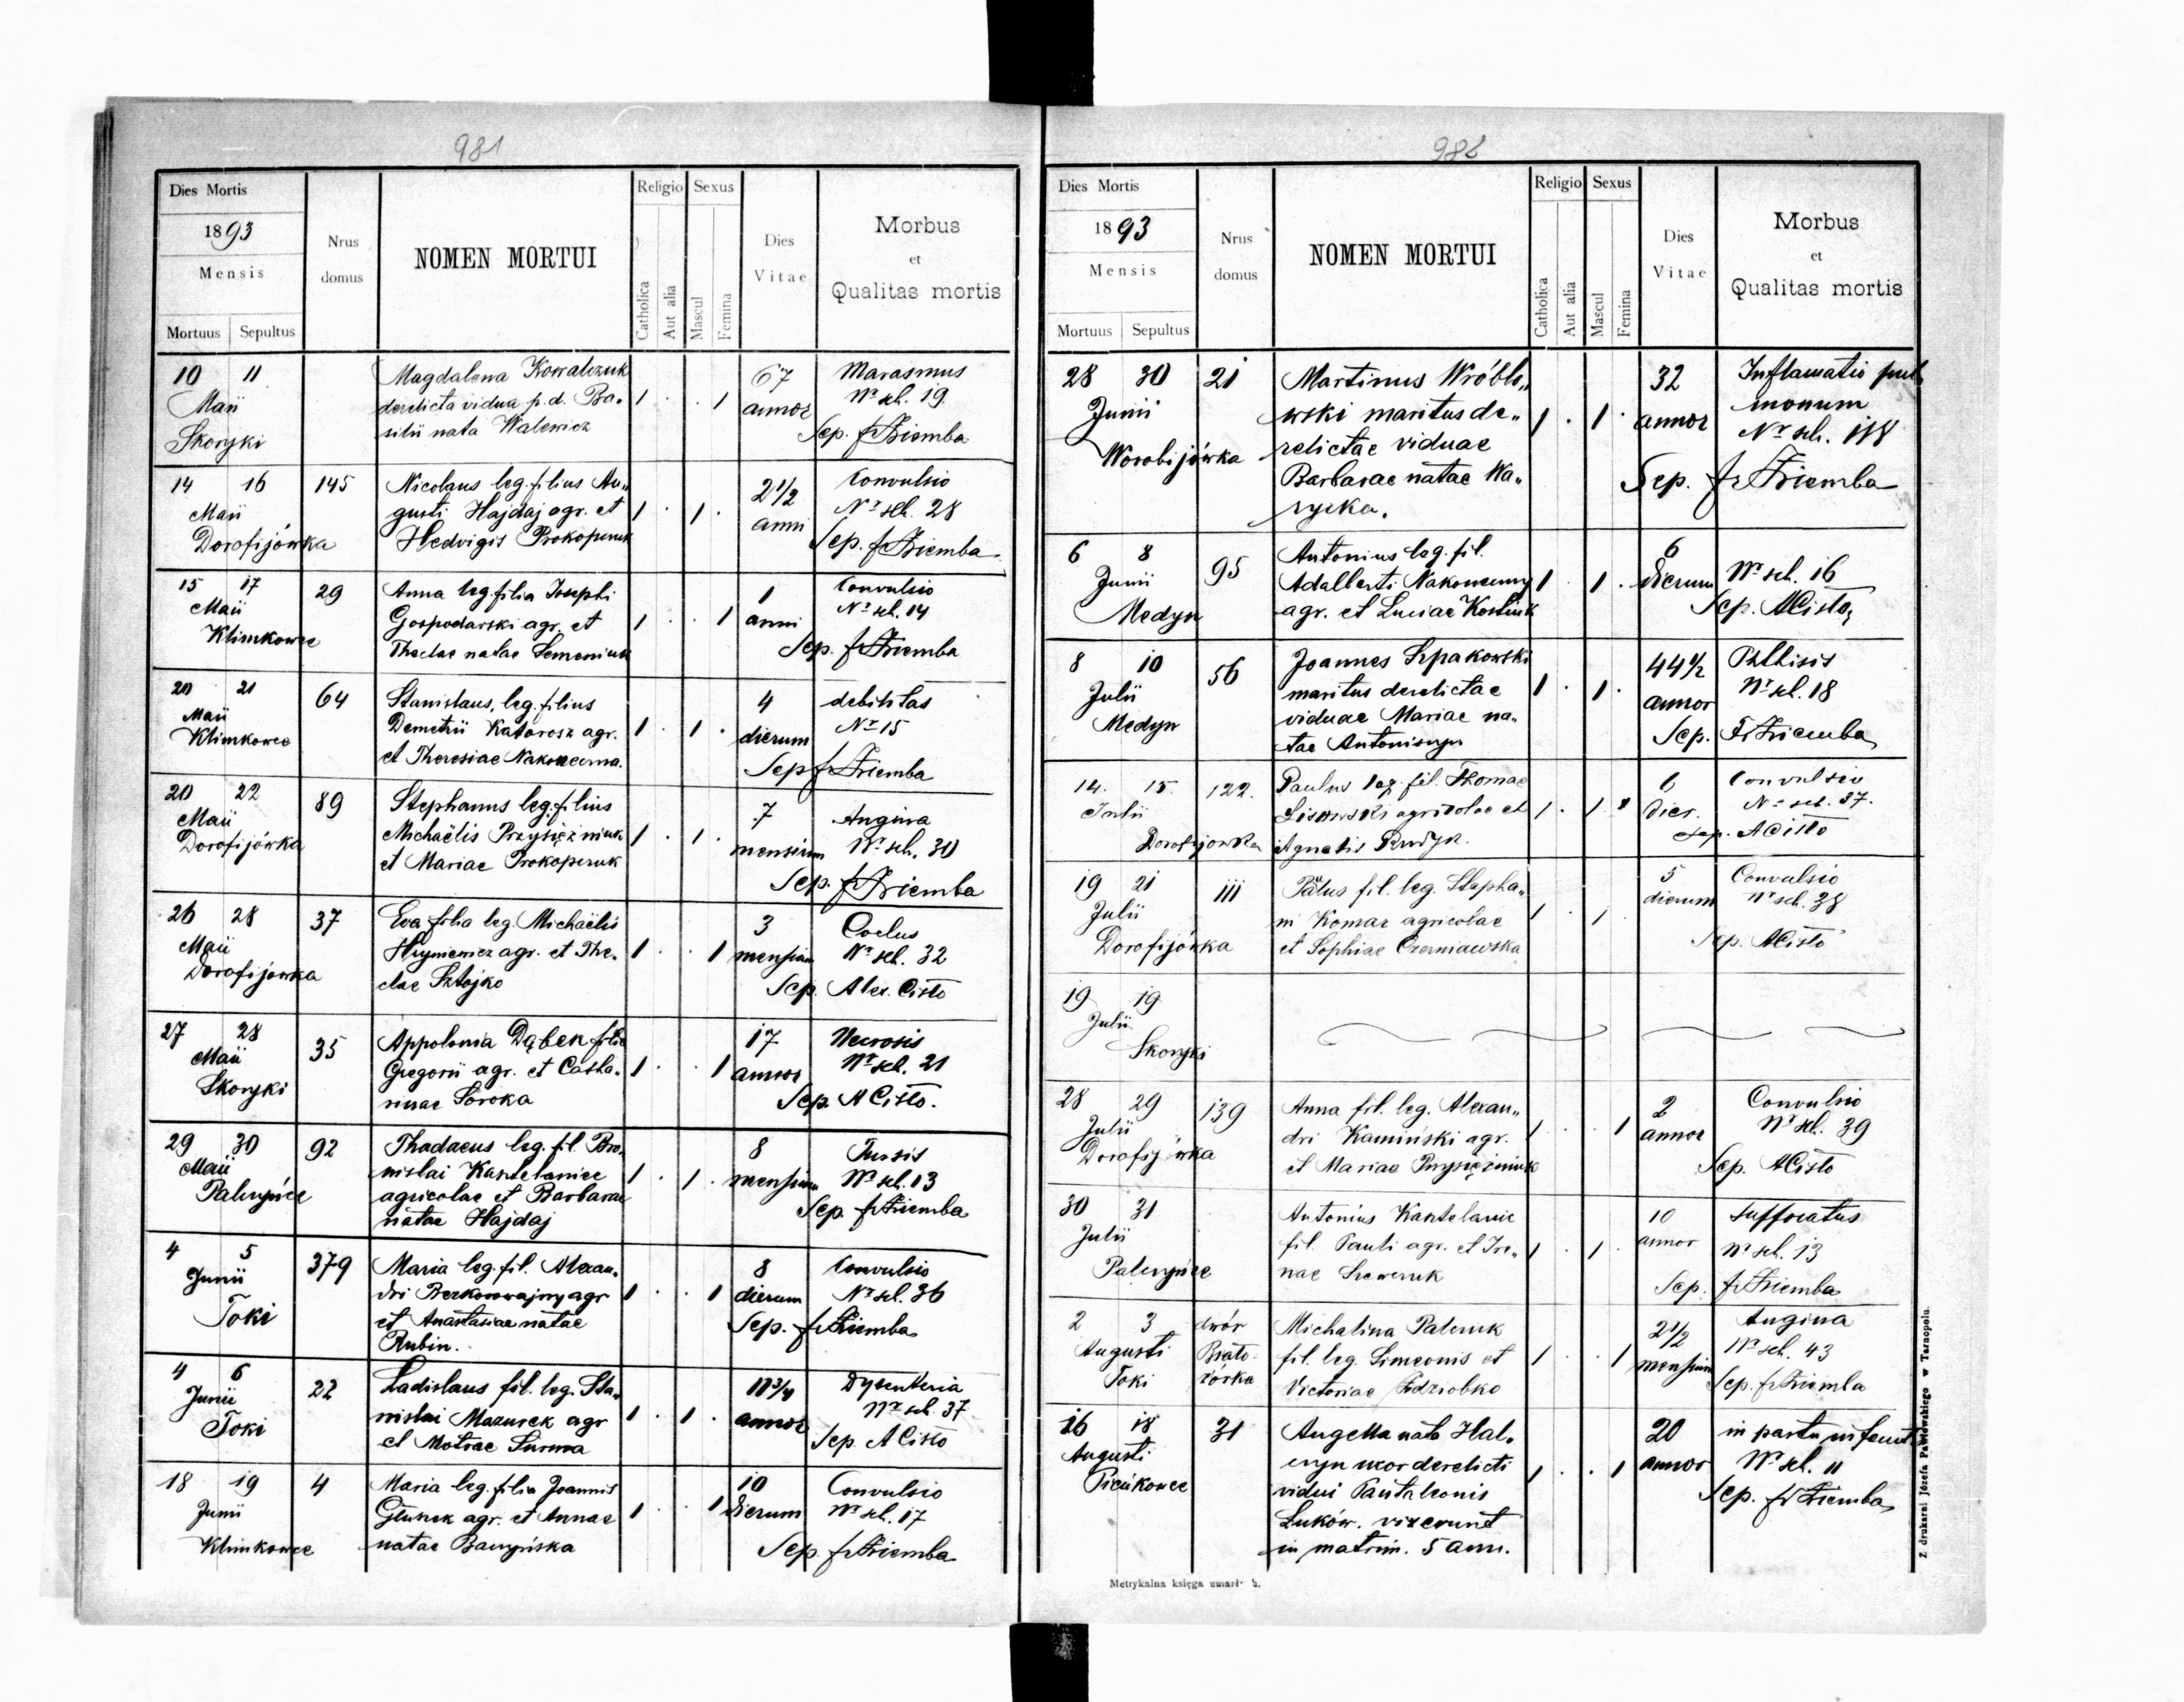 981
Dies Mortis
1893
Mensis
Mortuus Sepultus
Nrus domus
NOMEN MORTUI
Religio Sexus
Catholica
Aut alia
Mascul
Femina
Dies Vitae
Morbus
et
Qualitas mortis
10 11 Magdalena Kowalczuk 67 Marasmus
Maii derelicta vidua p. d. Ba- 1 . . 1 annor Nr sch. 19.
Skoryki silii nata Walewicz Sep. fr Ziemba
14 16 145 Nicolaus leg. filius Au„ 2 1/2 Convulsio
Maii gusti Hajdaj agr. et 1 . 1 . anni Nr sch. 28
Dorofijówka Hedvigis Prokopczuk Sep. fr Ziemba
15 17 29 Anna leg. filia Josephi 1 Convulsio
Maii Gospodarski agr. et 1 . . 1 anni Nr sch. 14
Klimkowce Theclae natae Semeniuk Sep. fr Ziemba
20 21 64 Stanislaus, leg. filius 4 debilitas
Maii Demetrii Katorosz agr. 1 . 1 . dierum Nr 15
Klimkowce et Theresiae Nakoneczna. Sep fr Ziemba
20 22 89 Stephanus leg. filius 7 Angina
Maii Michaëlis Przysiężniuk 1 . 1 . mensium Nr sch. 30
Dorofijówka et Mariae Prokopczuk Sep. fr Ziemba
26 28 37 Eva filia leg. Michaëlis 3
Maii Hryniewicz agr. et The- 1 . . 1 mensium Nr sch. 32
Dorofijowka clae Sztojko Sep. Alex. Cisło
27 28 35 Appolonia Dąbek filia 17 Necrosis
Maii Gregorii agr. et Catha- 1 . . 1 annor Nr sch. 21
Skoryki rinae Soroka Sep. A Cisło.
29 30 92 Thadaeus leg. fil. Bro- 8 Tussis
Maii nislai Kantelaniec 1 . 1 . mensium Nr sch. 13
Palczyńce agricolae et Barbarae Sep. fr Ziemba
natae Hajdaj
4 5 379 Maria leg. fil. Alexan- 8 Convulsio
Junii dri Bezkorowajny agr 1 . . 1 dierum Nr sch. 36
Toki et Anastasiae natae Sep. fr Ziemba
Rubin.
4 6 22 Ladislaus fil. leg. Sta- 11 3/4 Dysenteria
Junii nislai Mazurek agr 1 . 1 . annor Nr sch. 37
Toki et Motrae Surma Sep. A Cisło
18 19 4 Maria leg. filia Joannis 10 Convulsio
Junii Głunek agr. et Annae 1 . . 1 dierum Nr sch. 17
Klimkowce natae Sep. fr Ziemba
982
Dies Mortis
1893
Mensis
Mortuus Sepultus
Nrus domus
NOMEN MORTUI
Religio Sexus
Catholica
Aut alia
Mascul
Femina
Dies Vitae
Morbus
et
Qualitas mortis
28 30 21 Martinus Wróblo„ 32 Inflamatio pul
Junii wski maritus de„ 1 . 1 . annor monum
Worobijówka relictae viduae Nr sch. 118
Barbarae natae Wa„ Sep. fr Ziemba
rycka.
6 8 95 Antonius leg. fil. 6
Junii Adalberti Nakoneczny 1 . 1 . dierum Nr sch. 16
Medyn agr. et Luciae Kostiuk Sep. A Cisło
8 10 56 Joannes Szpakowski 44 1/2 Phthisis
Julii maritus derelictae 1 . 1 . annor Nr sch. 18
Medyn viduae Mariae na„ Sep. Fr Ziemba
tae Antoniszyn
14. 15. 122. Paulus leg. fil. Thomae 6 Convulsio
Julii Lisowski agricolae et 1 . 1 dier. Nr sch. 37.
Dorofijowka Agnetis Rudyk. Sep. A Cisło
19 21 111 Pätus fil. leg. Stepha„ 5 Convulsio
Julii ni Komar agricolae 1 . 1 dierum Nr sch. 38
Dorofijówka et Sophiae Czerniawska Sep. A Cisło
19 19
Julii
Skoryki
28 29 139 Anna fil. leg. Alexan„ 2 Convulsio
Julii dri Kamiński agr. 1 . . 1 annor Nr sch. 39
Dorofijówka et Mariae Przysiężniuk Sep. A Cisło
30 31 Antonius Kantelanic 10 suffocatus
Julii fil. Pauli agr. et Ire„ 1 . 1 . annor Nr sch. 13
Palczyńce nae Szewczuk Sep. fr Ziemba
2 3 dwór Michalina Palczuk 2 1/2 Angina
Augusti fil. leg. Simeonis et 1 . . 1 mensium Nr sch. 43
Toki Victoriae Sep. fr Ziemba
16 18 31 Angella nata Hal- 20 in partu
Augusti czyn uxor derelicti 1 . . 1 annor Nr sch. 11
Pieńkowce vidui Pantaleonis Sep. fr Ziemba
Luków. vixerunt
in matrim. 5 ann.
Metrykalna księga umarł
Z drukarni Józefa Pawłowskiego w Tarnopolu.